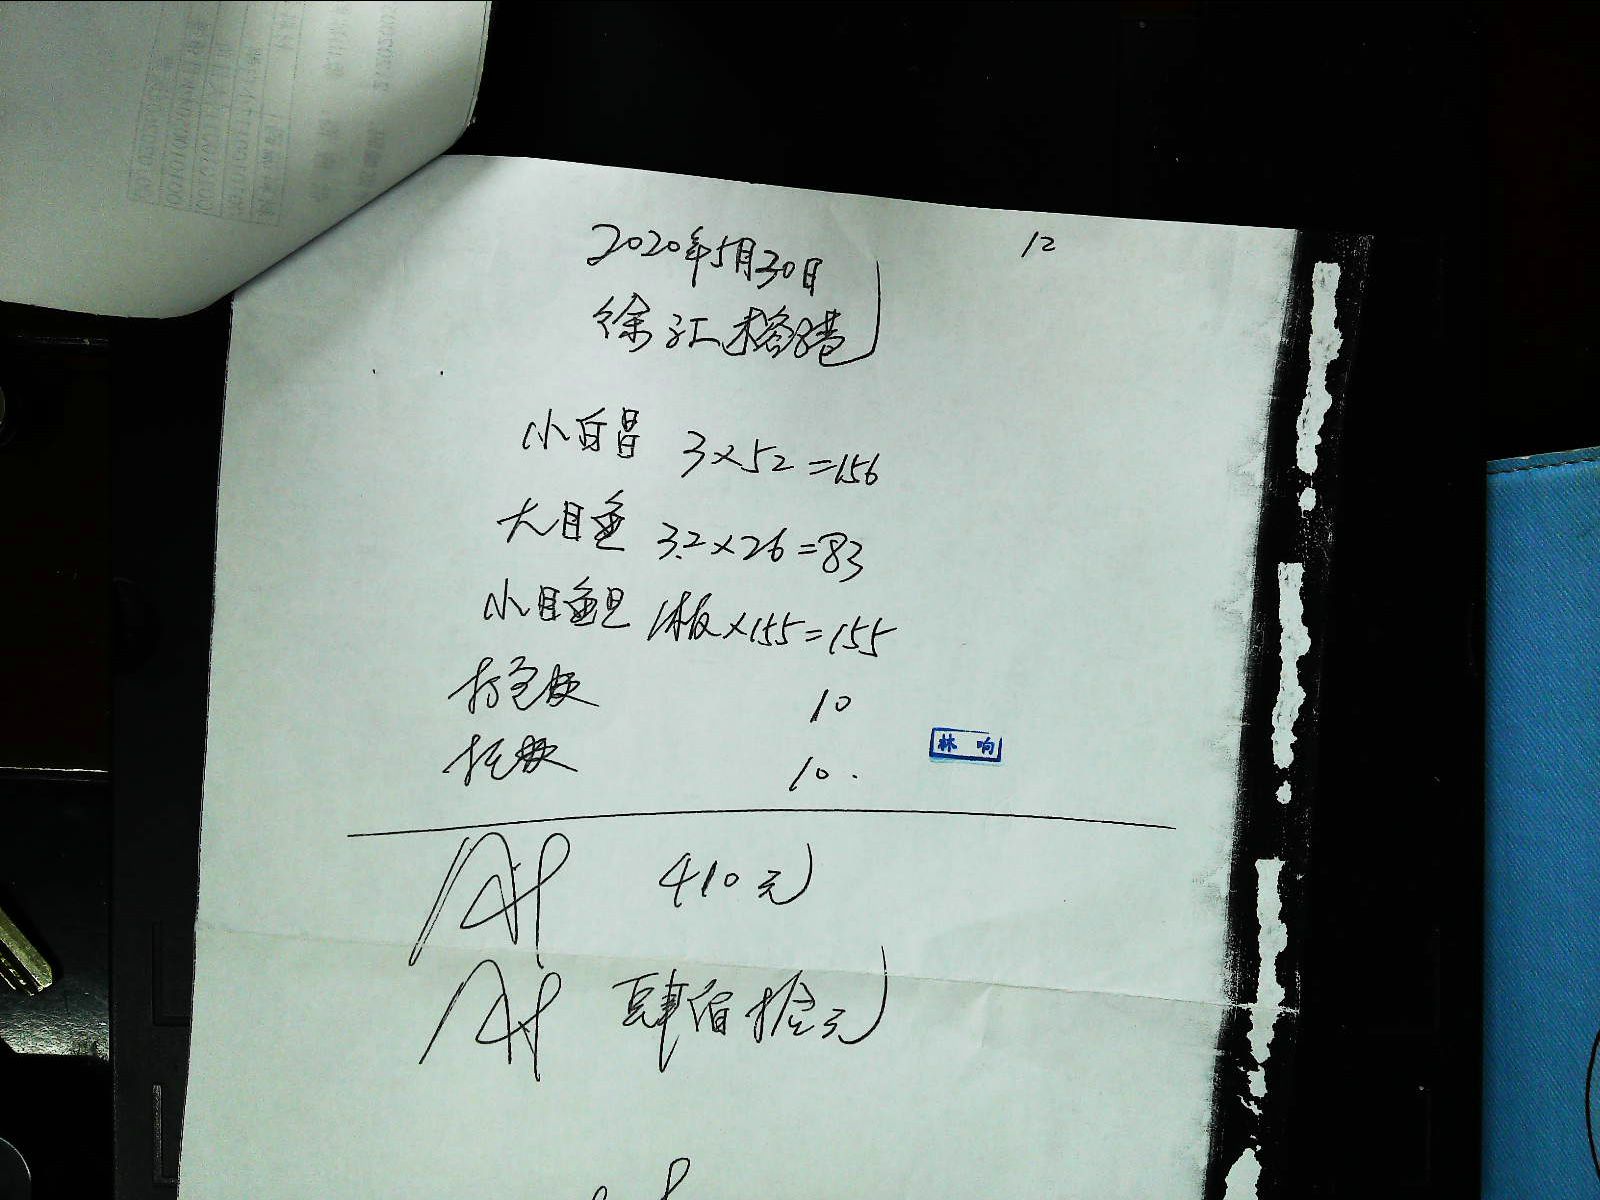 12
2020年5月30日
徐汇榕港
小白昌 3×52=156
大目鱼 3.2×26=83
小目鱼旦 1板×155=155
打包费 10
托费 10.
林响
410元
肆佰拾元